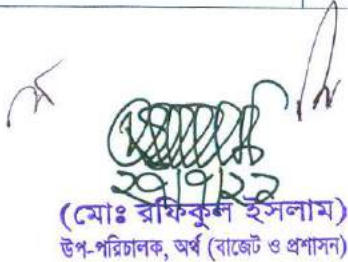 ২৭/৭/২২
(মোঃ রফিকুল ইসলাম)
উপ-পরিচালক, অর্থ (বাজেট ও প্রশাসন)